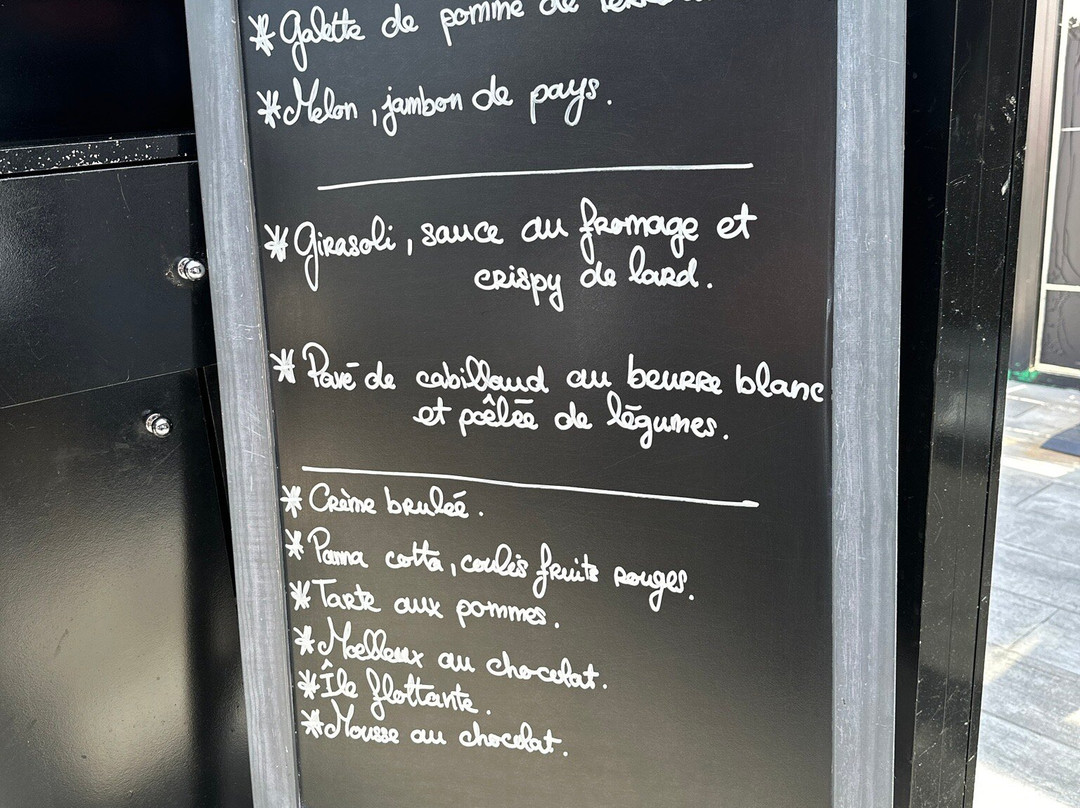 * Galette de pomme de terre
* Melon, jambon de pays.
* Girasoli, sauce au fromage et
crispy de lard.
* Pavé de cabillaud au beurre blanc
et poêlée de légumes.
* Crème brulée.
* Panna cotta, coulis fruits rouges.
* Tarte aux pommes.
* Moelleux au chocolat.
* Île flottante.
* Mousse au chocolat.